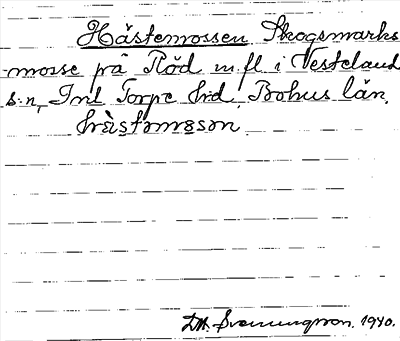 Hästemossen Skogsmarks
mosse på Röd m fl i Västeland
s:n, Inl Torpe hrd, Bohus län.
hrästəməsən
D.M. Svenningsson. 1940.